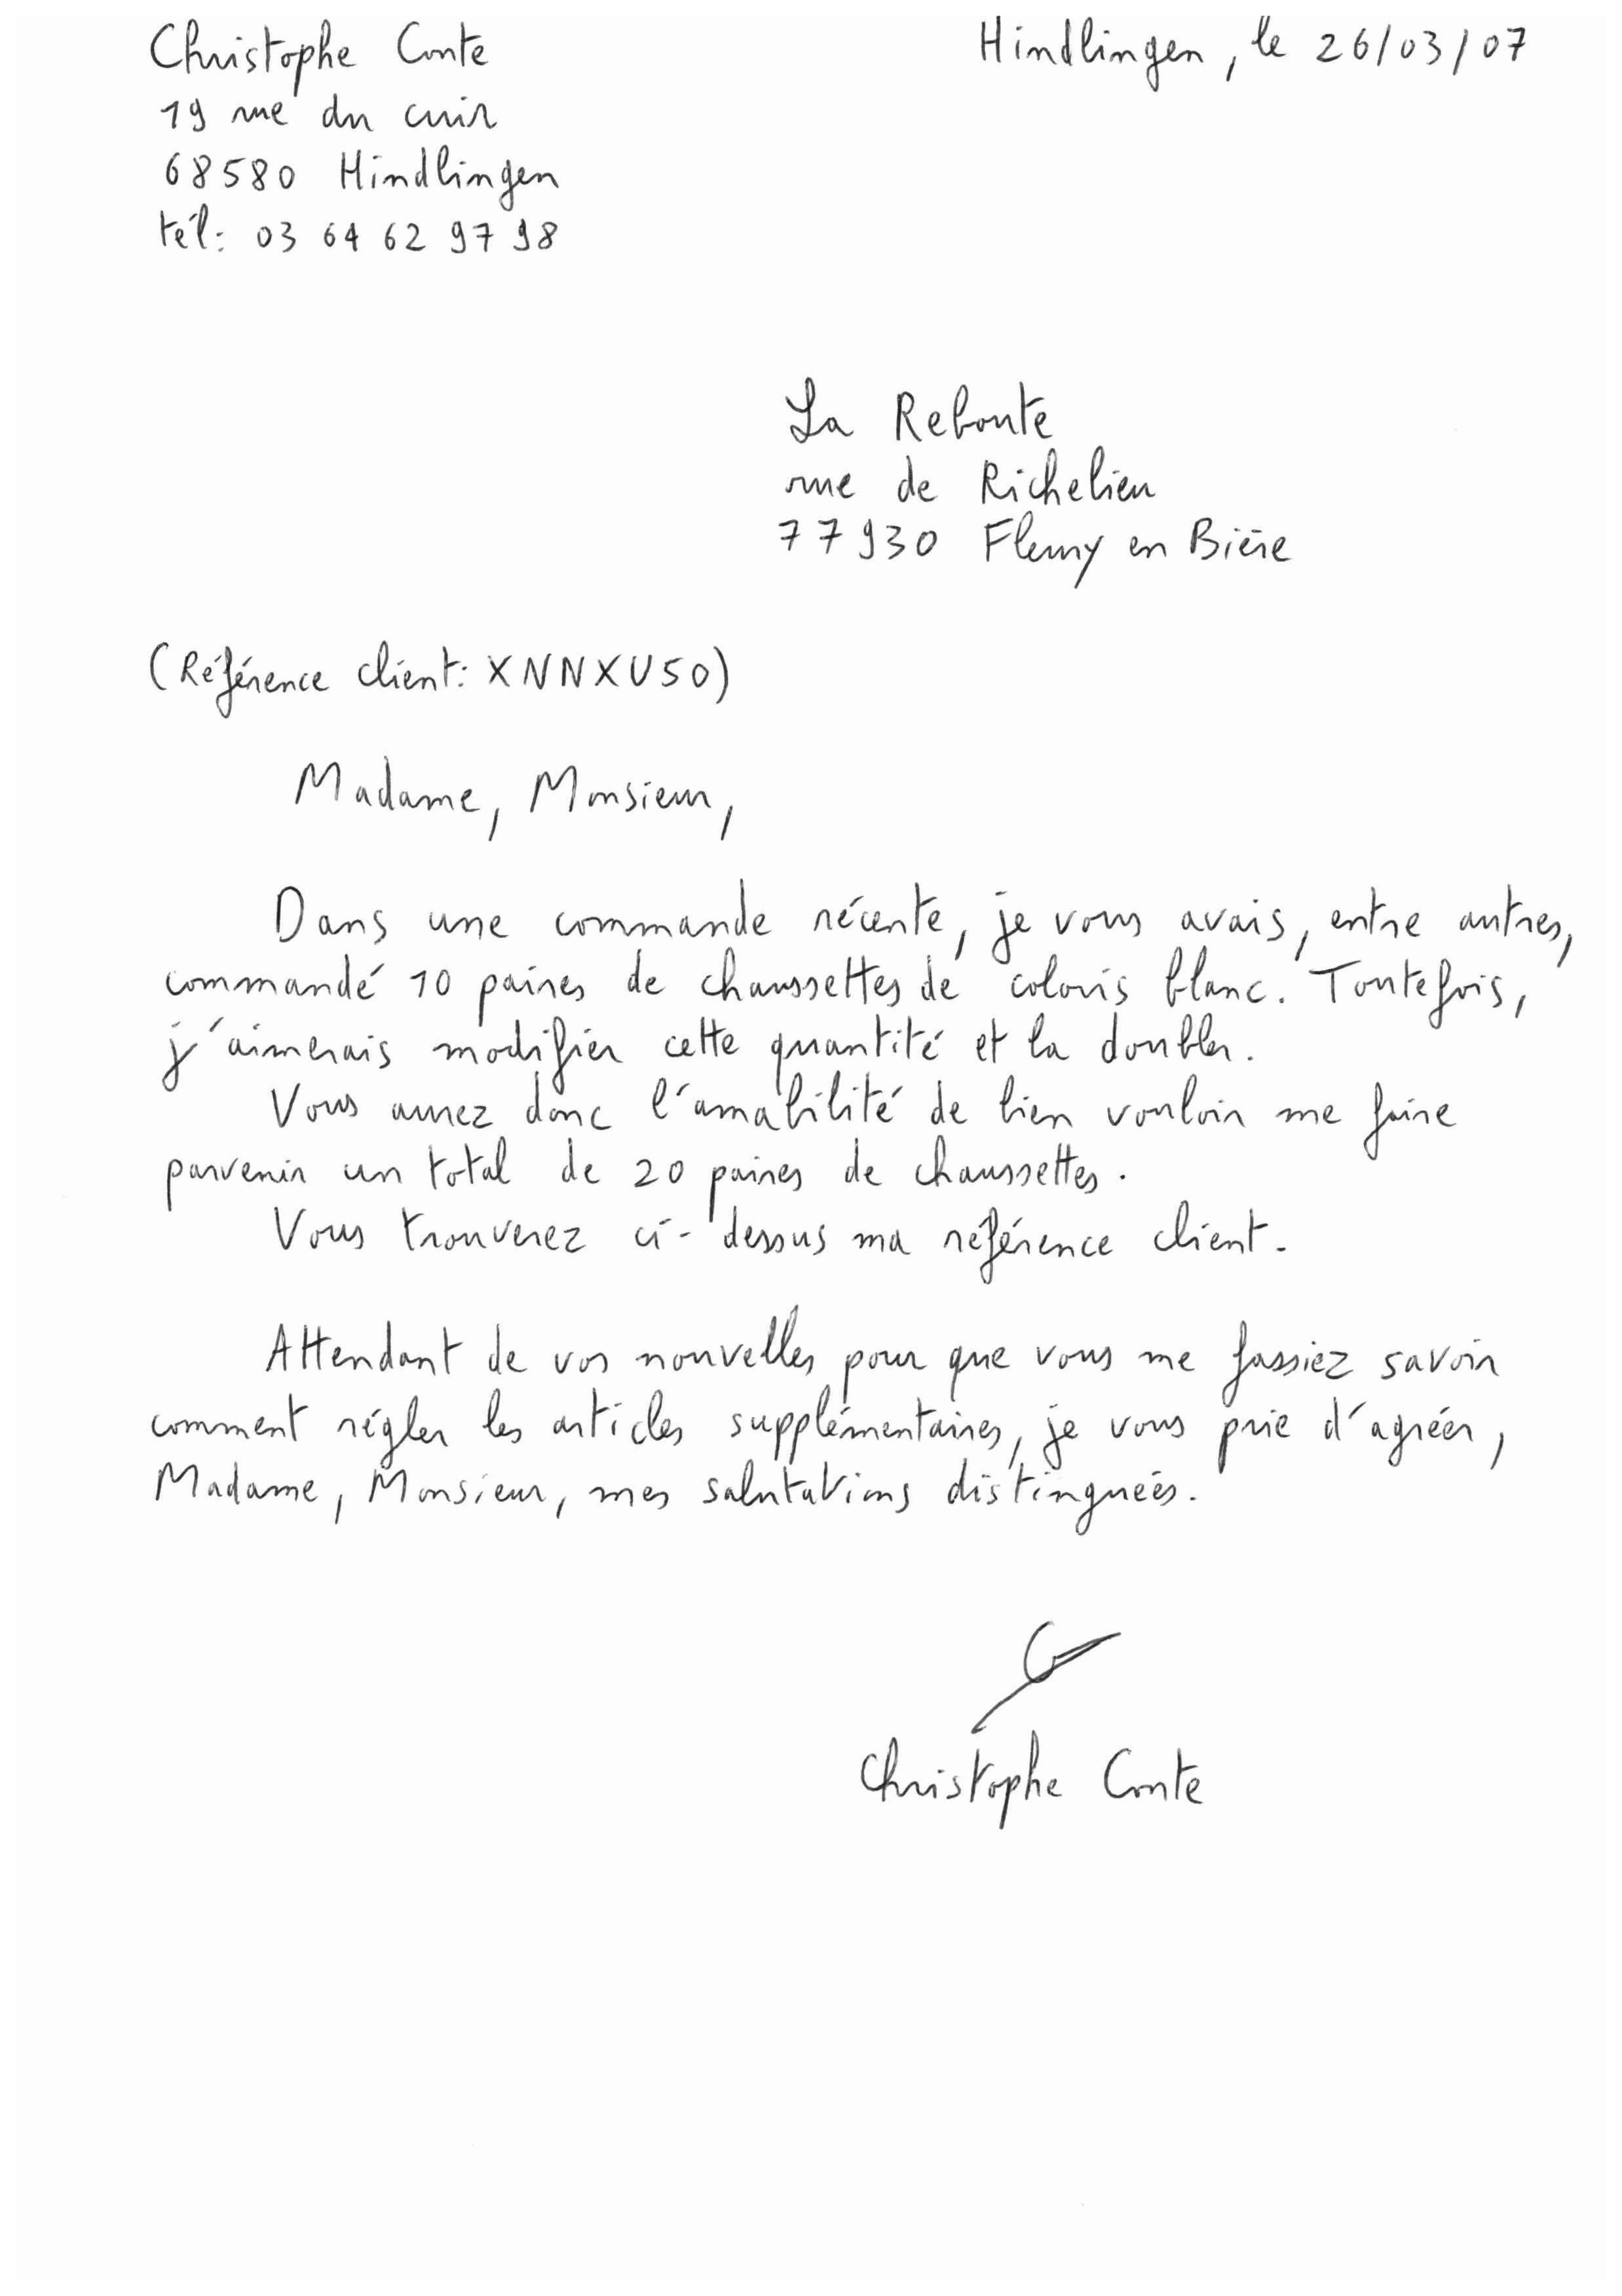 Christophe Conte
Hindlingen, le 26/03/07
19 rue du cuir
68580 Hindlingen
tél: 03 64 62 97 98
La Reboute
rue de Richelieu
77930 Fleury en Bière
(Référence client: XNNXU50)
Madame, Monsieur,
Dans une commande récente, je vous avais, entre autres,
commandé 10 paires de chaussettes de coloris blanc. Toutefois,
j'aimerais modifier cette quantité et la doubler.
Vous aurez donc l'amabilité de bien vouloir me faire
parvenir un total de 20 paires de chaussettes.
Vous trouverez ci-dessus ma référence client.
Attendant de vos nouvelles pour que vous me fassiez savoir
comment régler les articles supplémentaires, je vous prie d'agréer,
Madame, Monsieur, mes salutations distinguées.
Christophe Conte